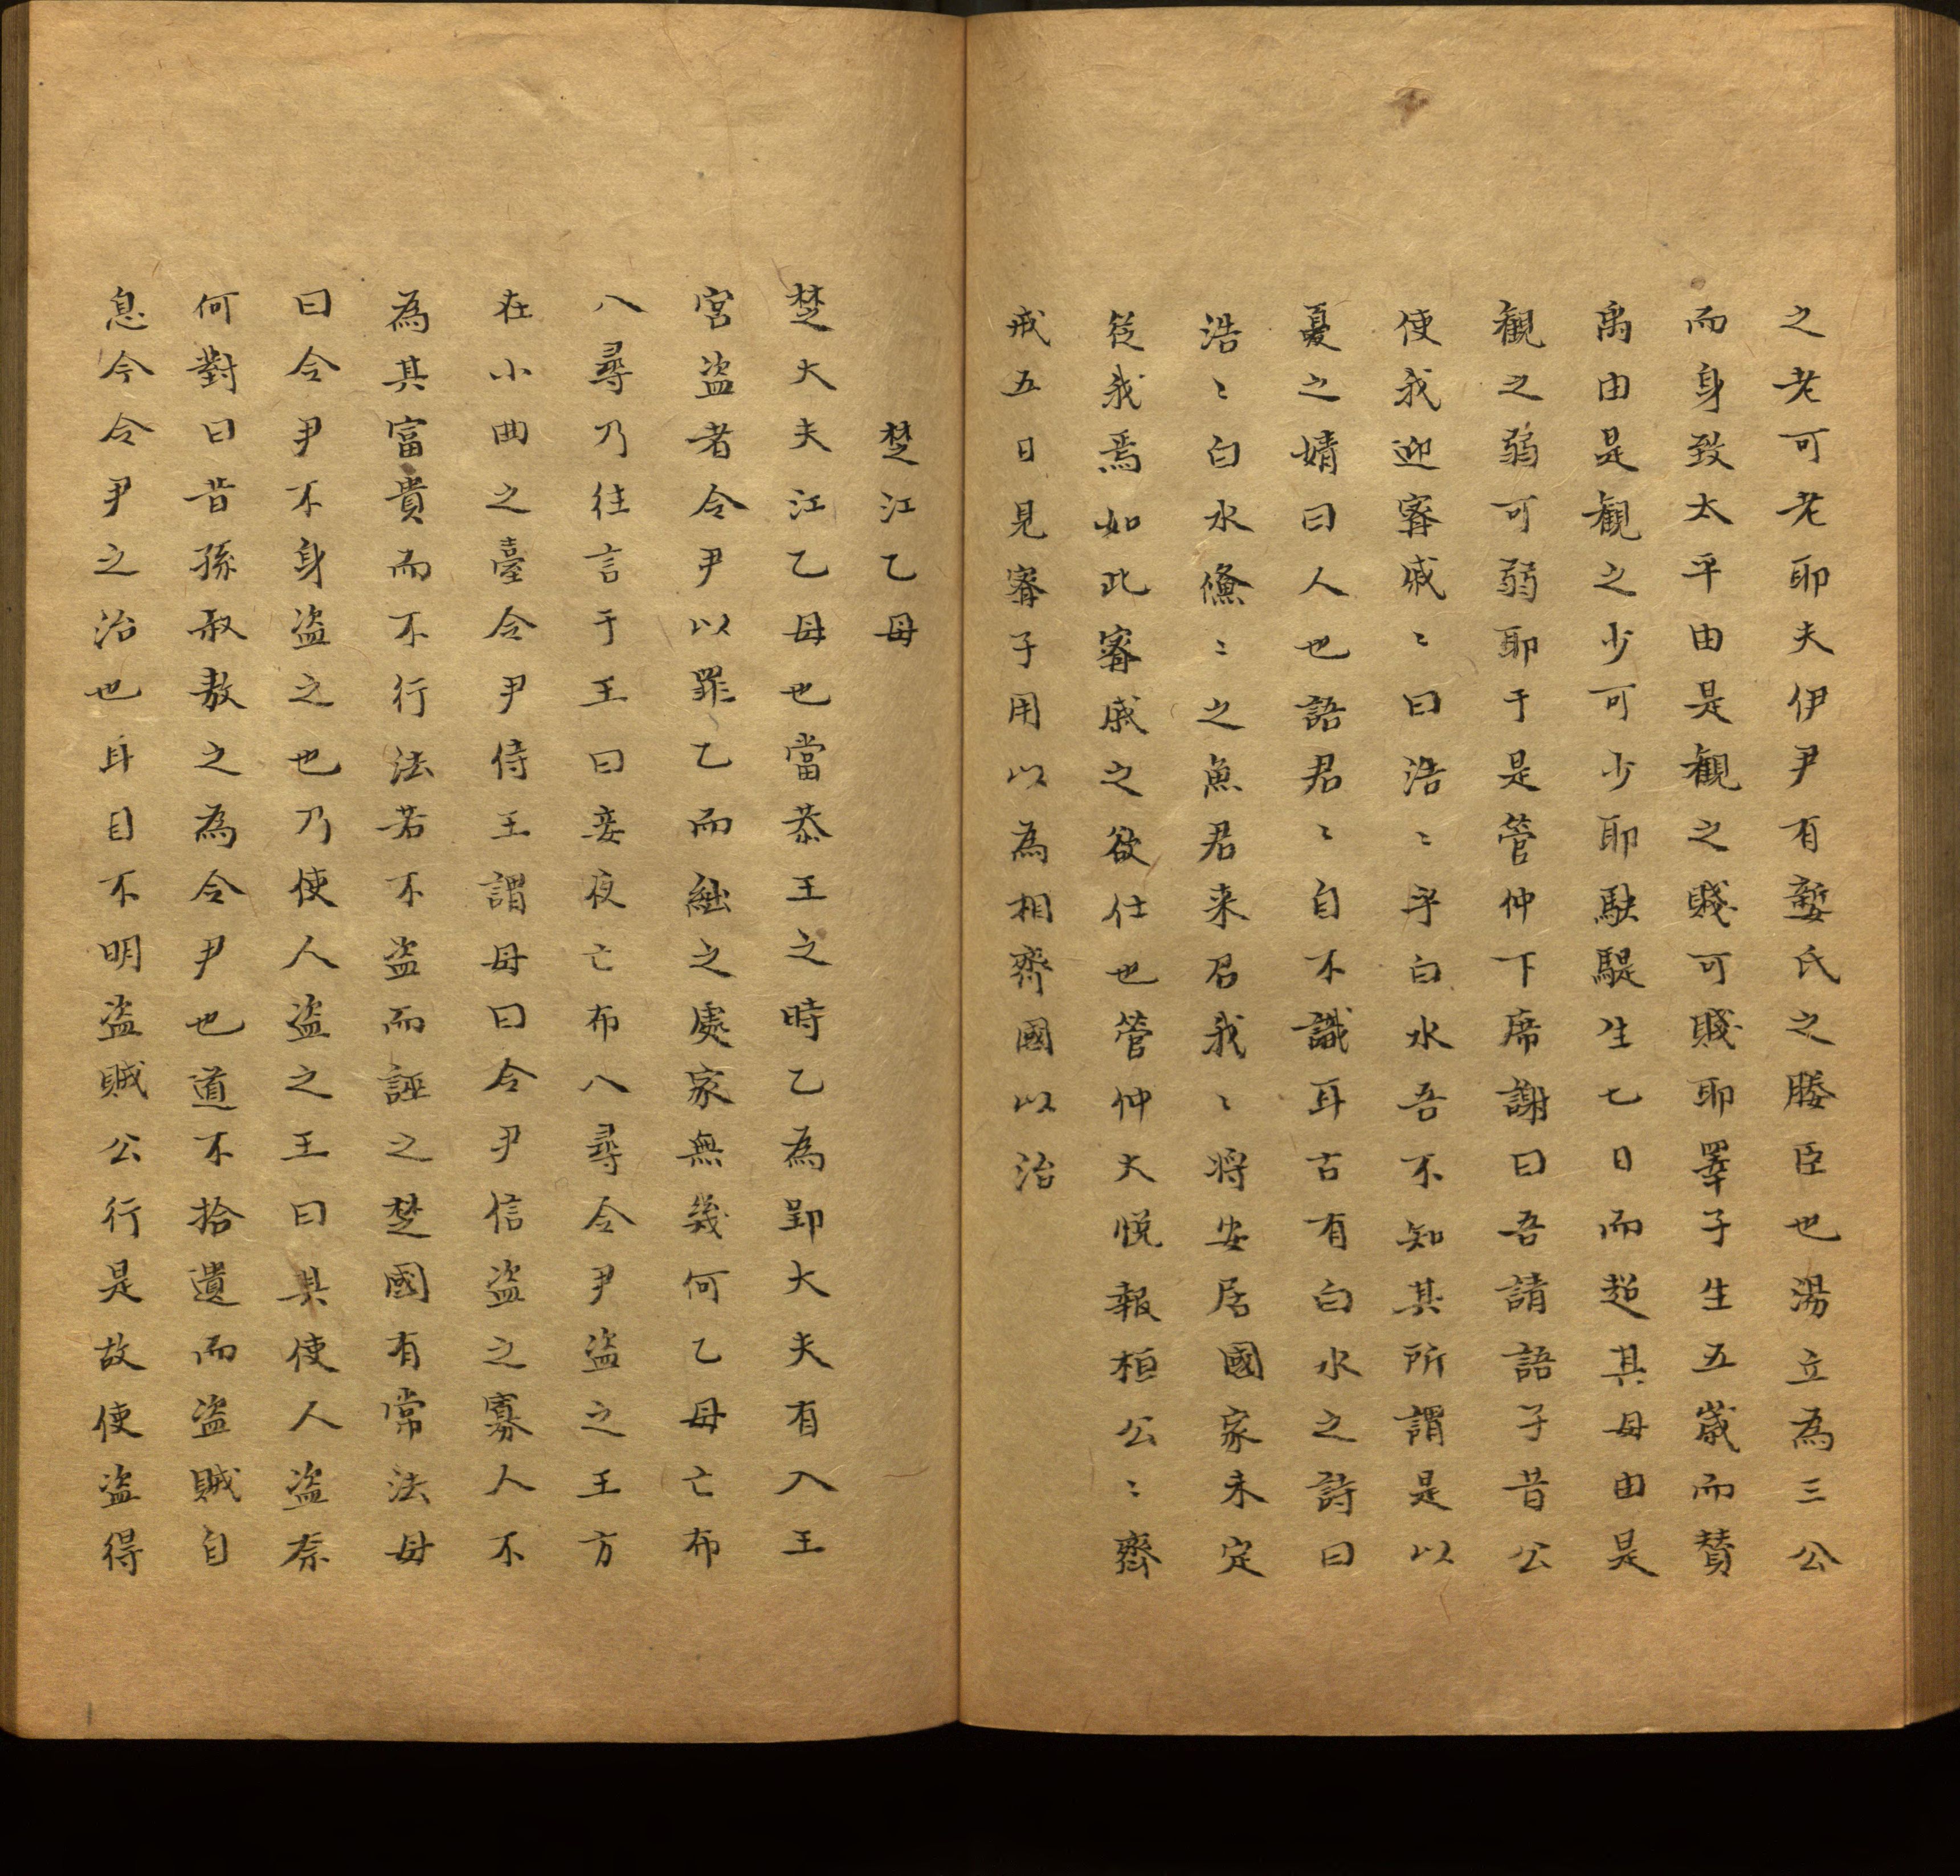 之老可老耶夫伊尹有㜪氏之媵臣也湯立為三公
而身致太平由是觀之賤可賤耶睪子生五歲而賛
禹由是觀之少可少耶駃騠生七日而超其母由是
觀之弱可弱耶于是管仲下席謝曰吾請語子昔公
使我迎寗戚〻曰浩〻乎白水吾不知其所謂是以
憂之婧曰人也語君〻自不識耳古有白水之詩曰
浩〻白水儵〻之魚君来召我〻将安居國家未定
從我焉如此寗戚之欲仕也管仲大悦報桓公〻齊
戒五日見寗子用以為相齊國以治
楚江乙母
楚大夫江乙母也當恭王之時乙為郢大夫有入王
宮盗者令尹以罪乙而絀之處家無幾何乙母亡布
八尋乃往言于王曰妾夜亡布八尋令尹盗之王方
在小曲之臺令尹侍王謂母曰令尹信盗之寡人不
為其富貴而不行法若不盗而誣之楚國有常法母
曰令尹不身盗之也乃使人盗之王曰其使人盗奈
何對曰昔孫叔敖之為令尹也道不拾遺而盗賊自
息今令尹之治也耳目不明盗賊公行是故使盗得